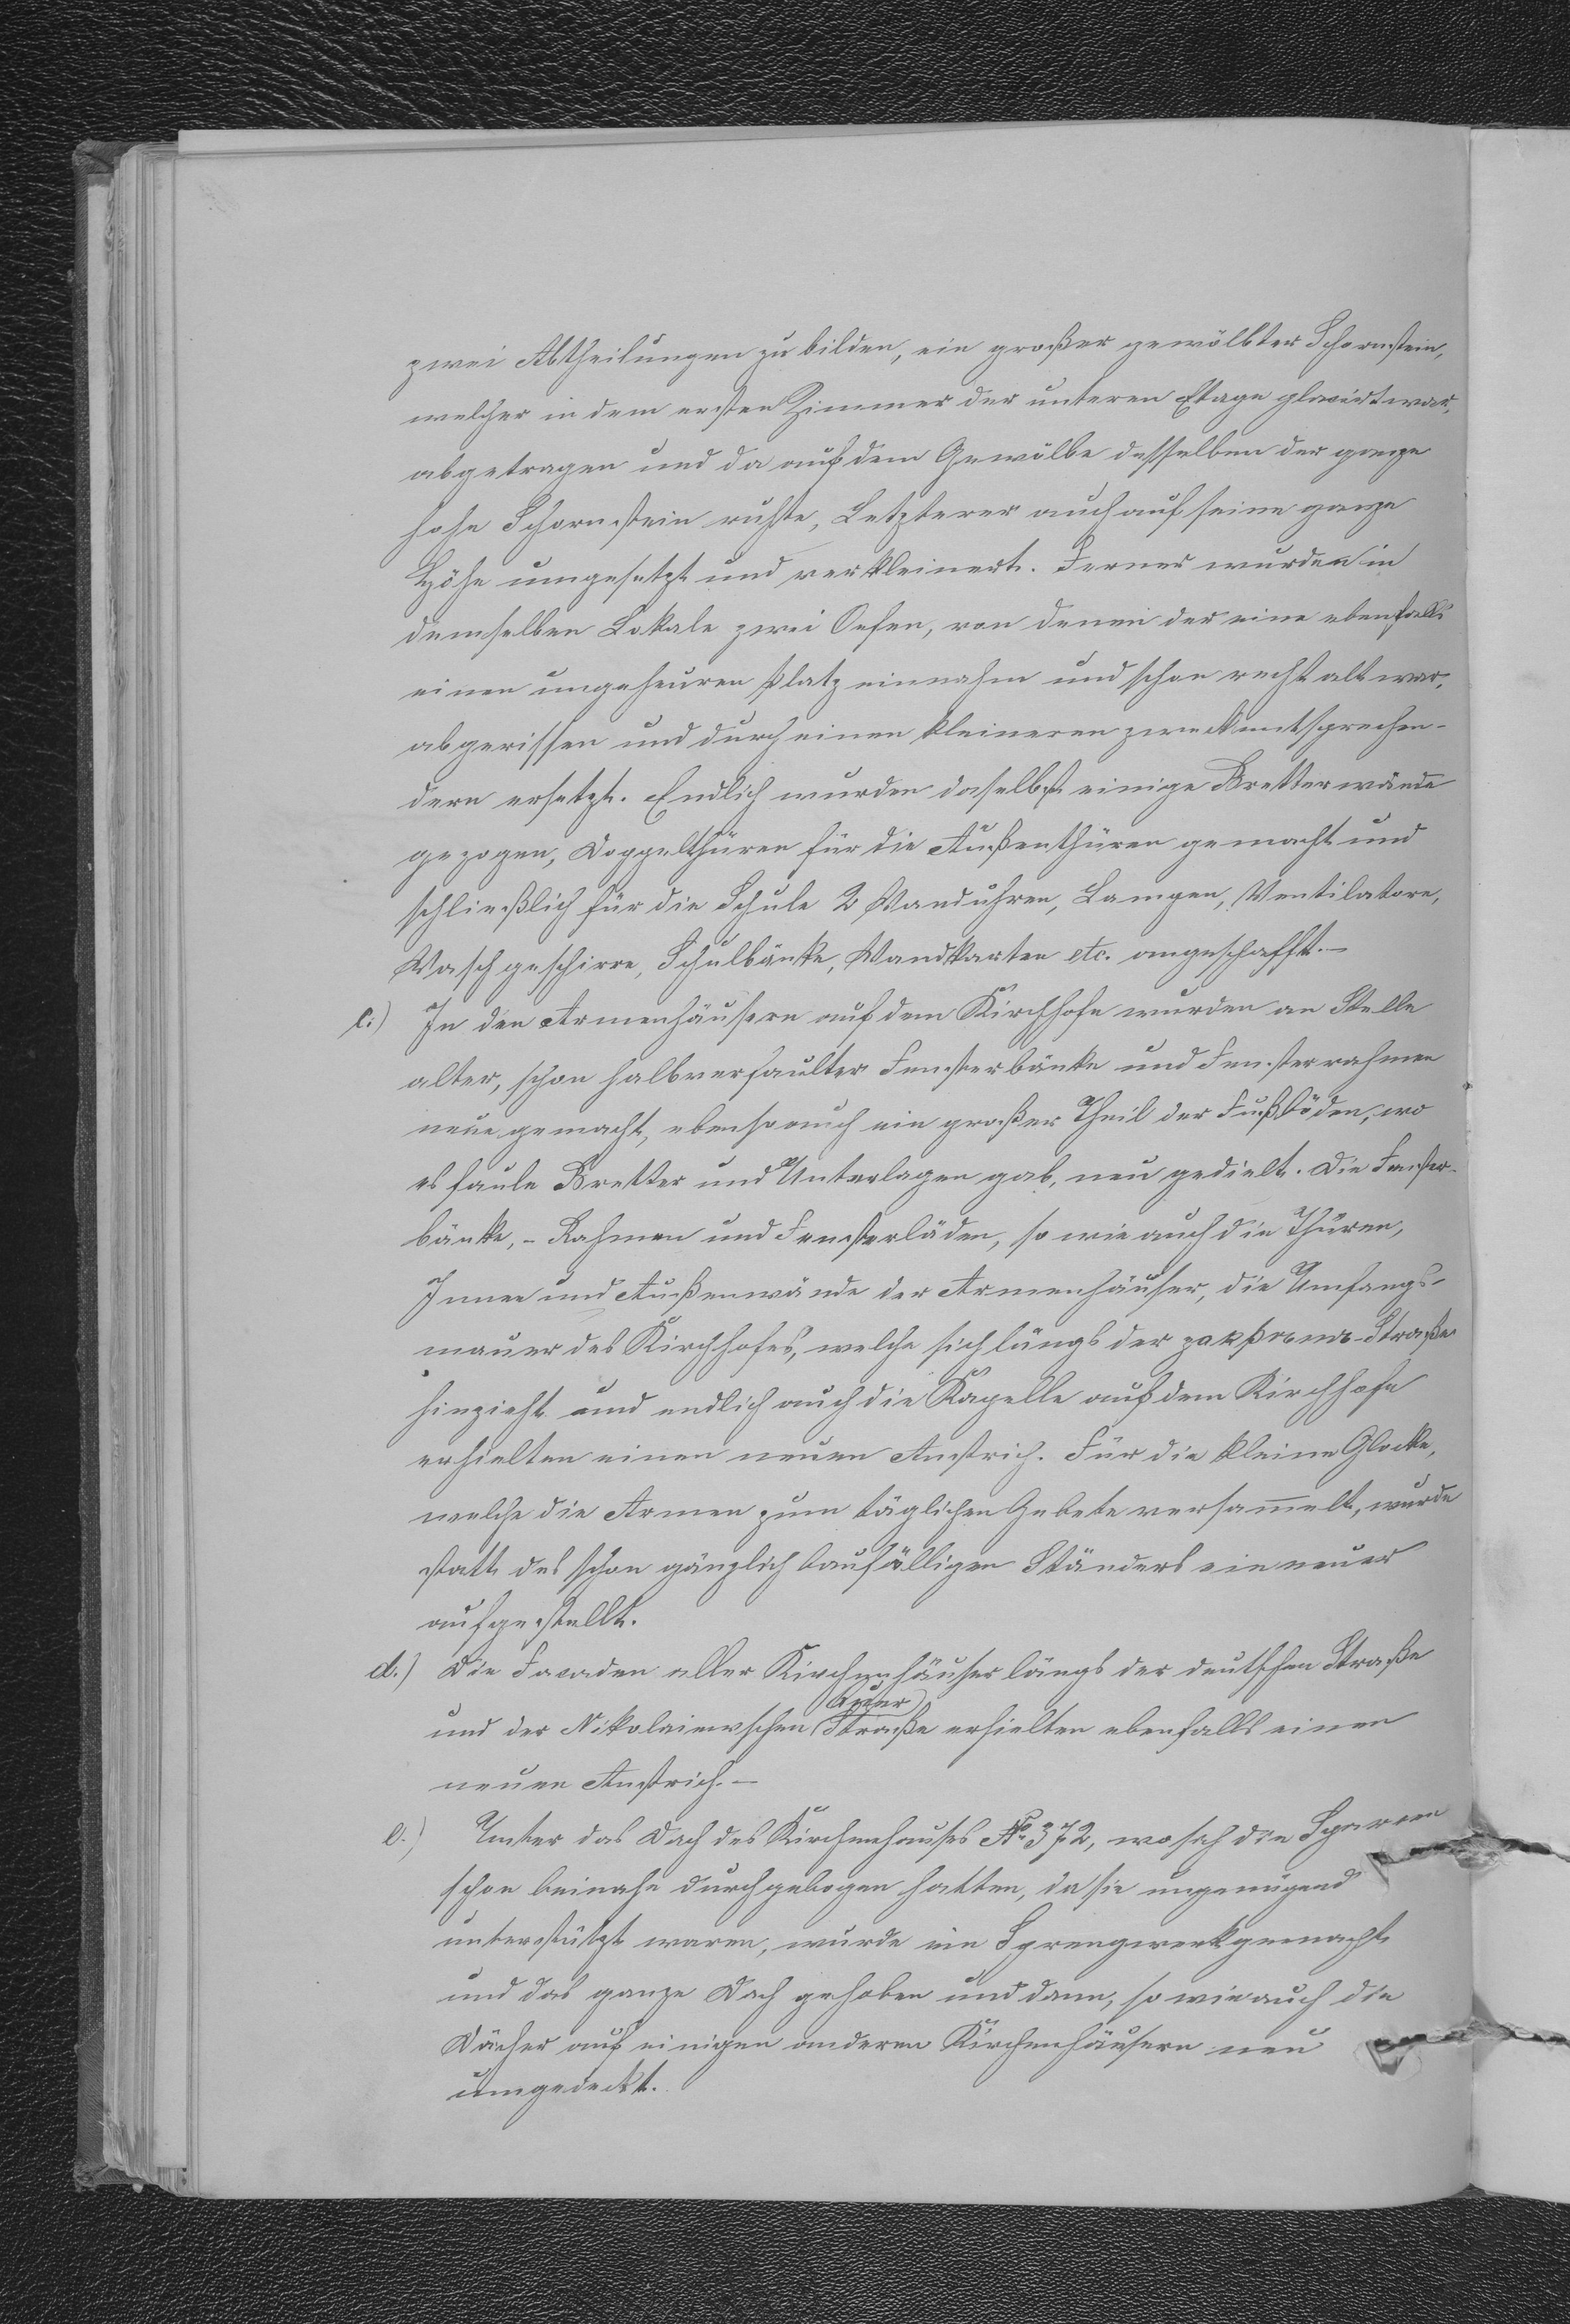 zwei Abtheilungen zu bilden, ein großer gewölbter Schornstein,
welcher in dem ersten Zimmer der unteren Etage placirt war,
abgetragen und da auf dem Gewölbe desselben der ganze
hohe Schornstein ruhte, Letzterer auch auf seine ganze
Höhe umgesetzt und verkleinert. Ferner wurden in
demselben Lokale zwei Oefen, von denen der eine ebenfalls
einen ungeheuren Platz einnahm und schon recht alt war,
abgerissen und durch einen kleineren zweckentsprechen-
dern ersetzt. Endlich wurden daselbst einige Bretterwände
gezogen, Doppelthüren für die Außenthüren gemacht und
schließlich für die Schule 2 Wanduhren, Lampen, Ventilatore,
Waschgeschirre, Schulbänke, Wandkarten etc. angeschafft.—
c.) In den Armenhäusern auf dem Kirchhofe wurden an Stelle
alter, schon halbverfaulter Fensterbänke und Fensterrahmen
neue gemacht, ebenso auch ein großer Theil der Fußböden, wo
es faule Bretter und Unterlagen gab, neu gedielt. Die Fenster-
bänke, - Rahmen und Fensterläden, so wie auch die Thüren,
Innen und Außenwände der Armenhäuser, die Umfangs-
mauer des Kirchhofes, welche sich längs der -Straße
hinzieht und endlich auch die Kapelle auf dem Kirchhofe
erhielten einen neuen Anstrich. Für die kleine Glocke,
welche die Armen zum täglichen Gebete versam̅elt, wurde
statt des schon gänzlich baufälligen Ständers ein neuer
aufgestellt.
d.) Die Facaden aller Kirchenhäuser längs der deutschen Straße
und der Nikolaiewschen Quer Straße erhielten ebenfalls einen
neuen Anstrich.—
e.) Unter das Dach des Kirchenhauses № 372, wo sich die Sparren
schon beinahe durchgebogen hatten, da sie ungenügend
unterstützt waren, wurde ein Sprengwerk gemacht
und das ganze Dach gehoben und dann, so wie auch die
Dächer auf einigen anderen Kirchenhäusern neu
umgedeckt.